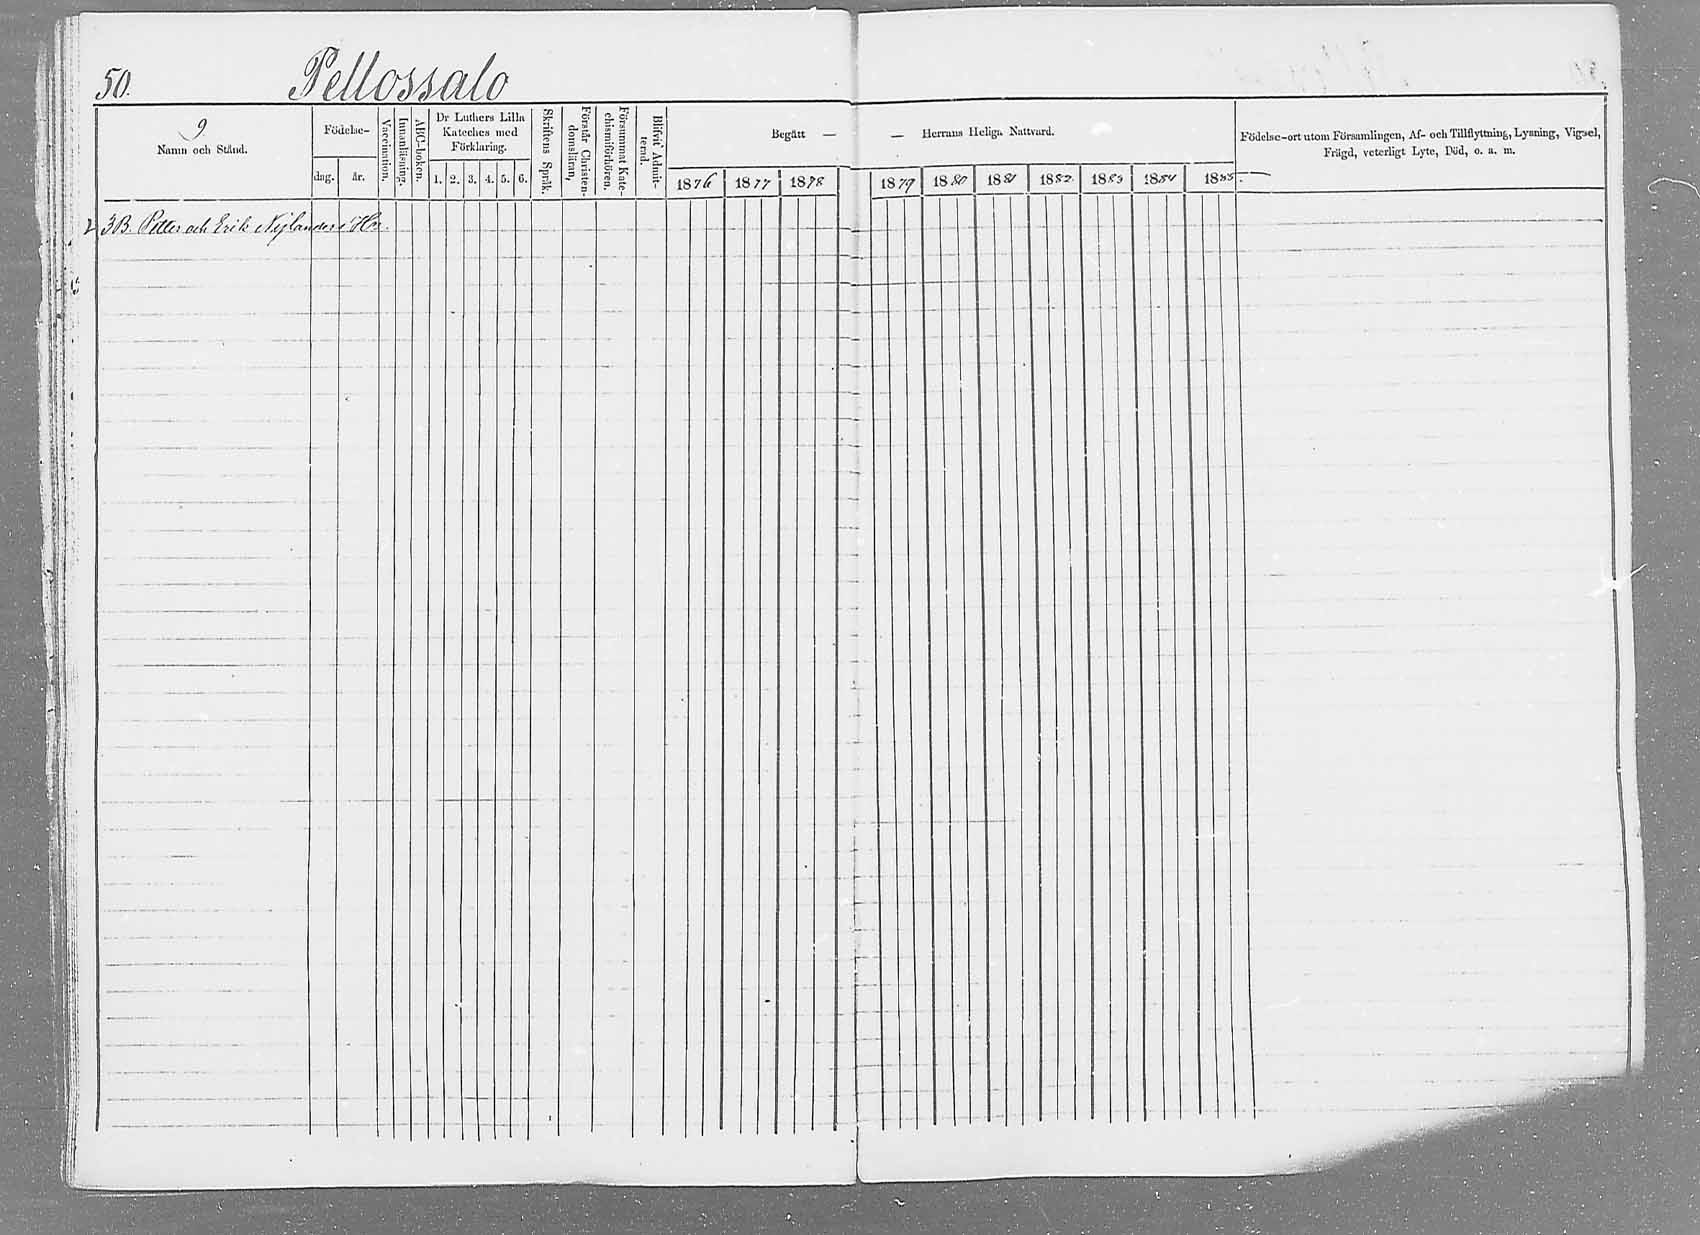 50. Pellossalo
9
Namn och Stånd.
Födelse-
dag. år.
Vaccination.
Innanläsning.
ABC-boken.
Dr Luthers Lilla
Kateches med
Förklaring.
1. 2. 3. 4. 5. 6.
Skriftens Språk.
Förstår Christen-
domsläran,
Försummat Kate-
chismiförhören.
Blifvit Admit-
terad.
Begått — — Herrans Heliga Nattvard.
1876 1877 1878 1879 1880 1881 1882 1883 1884 1885
Födelse-ort utom Församlingen, Af- och Tillflyttning, Lysning, Vigsel,
Frägd, veterligt Lyte, Död, o. a. m.
2 3B. Petter och Erik Nylanders